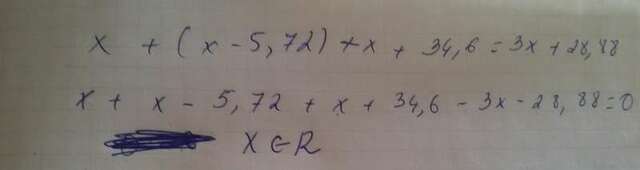 x + (x - 5,72) + x + 34,6 = 3x + 28,88
x + x - 5,72 + x + 34,6 - 3x - 28,88 = 0
X ∈ R